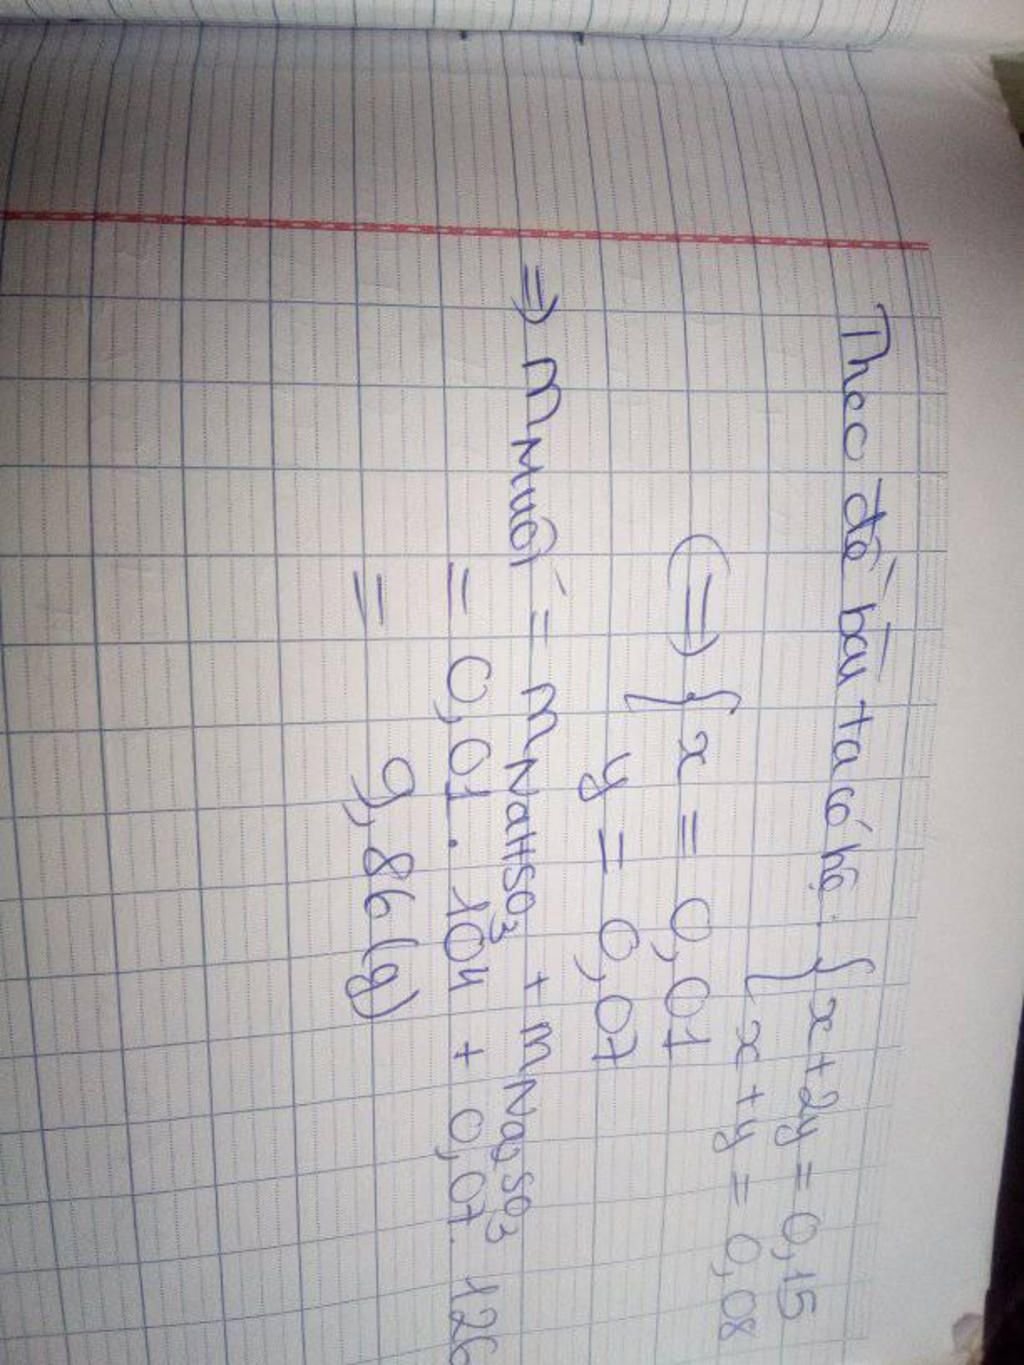 Theo đề bài ta có hệ: { x + 2y = 0,15
x + y = 0,08
<=> { x = 0,01
y = 0,07
=> m Muối = m NaHSO3 + m Na2SO3
= 0,01 . 104 + 0,07 . 126
= 9,86 (g)